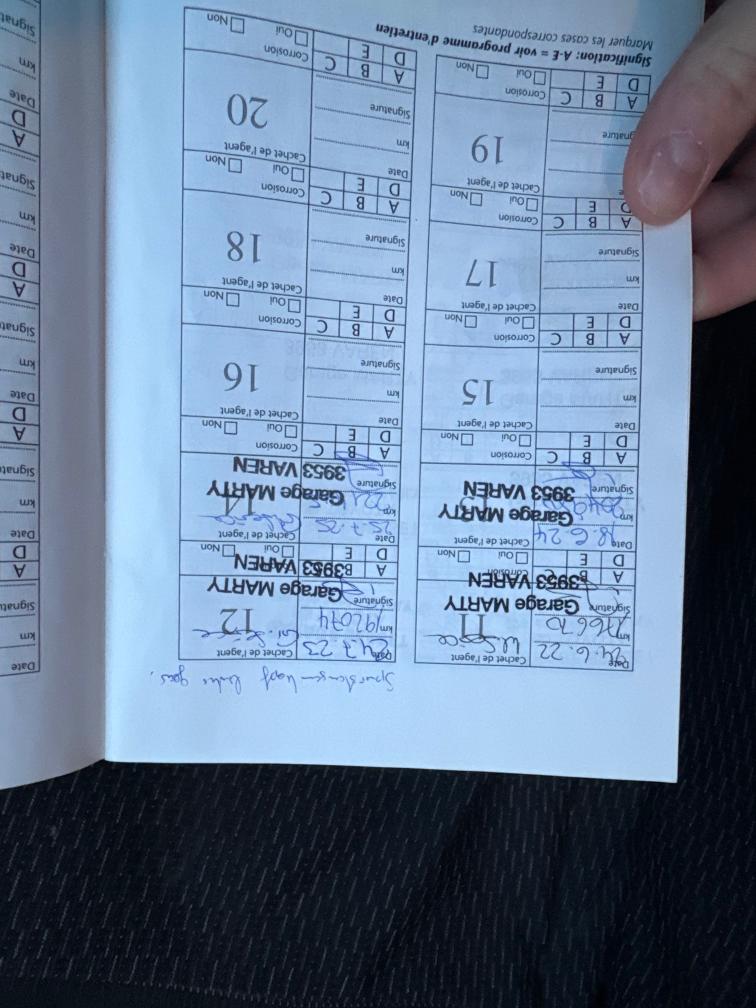 Spurstangenkopf links
Date 24.6.22
Cachet de l'agent
km 176670
11
Signature
Garage MARTY
3953 VAREN
A B
Corrosion
D E
Oui Non
Date 18.6.24
Cachet de l'agent
km
Garage MARTY
Signature
3953 VAREN
A B C
Corrosion
D E
Oui Non
Date
Cachet de l'agent
km
15
Signature
A B C
Corrosion
D E
Oui Non
Date
Cachet de l'agent
km
17
Signature
A B C
Corrosion
D E
Oui Non
Cachet de l'agent
19
gnature
A B C
Corrosion
D E
Oui Non
Signification: A-E = voir programme d'entretien
Marquer les cases correspondantes
Date 24.7.23
Cachet de l'agent
km 192074
12
Signature
Garage MARTY
3953 VAREN
A B
D E
Oui Non
Date 25.7.25
Cachet de l'agent
km
14
Garage MARTY
Signature
3953 VAREN
A B C
Corrosion
D E
Oui Non
Date
Cachet de l'agent
km
16
Signature
A B C
Corrosion
D E
Oui Non
Date
Cachet de l'agent
km
18
Signature
A B C
Corrosion
D E
Oui Non
Date
Cachet de l'agent
km
20
Signature
A B C
Corrosion
D E
Oui Non
Date
km
Signat
A
D
Date
km
Signat
A
D
Date
km
Signat
A
D
Date
km
Signat
A
D
Date
km
Signat